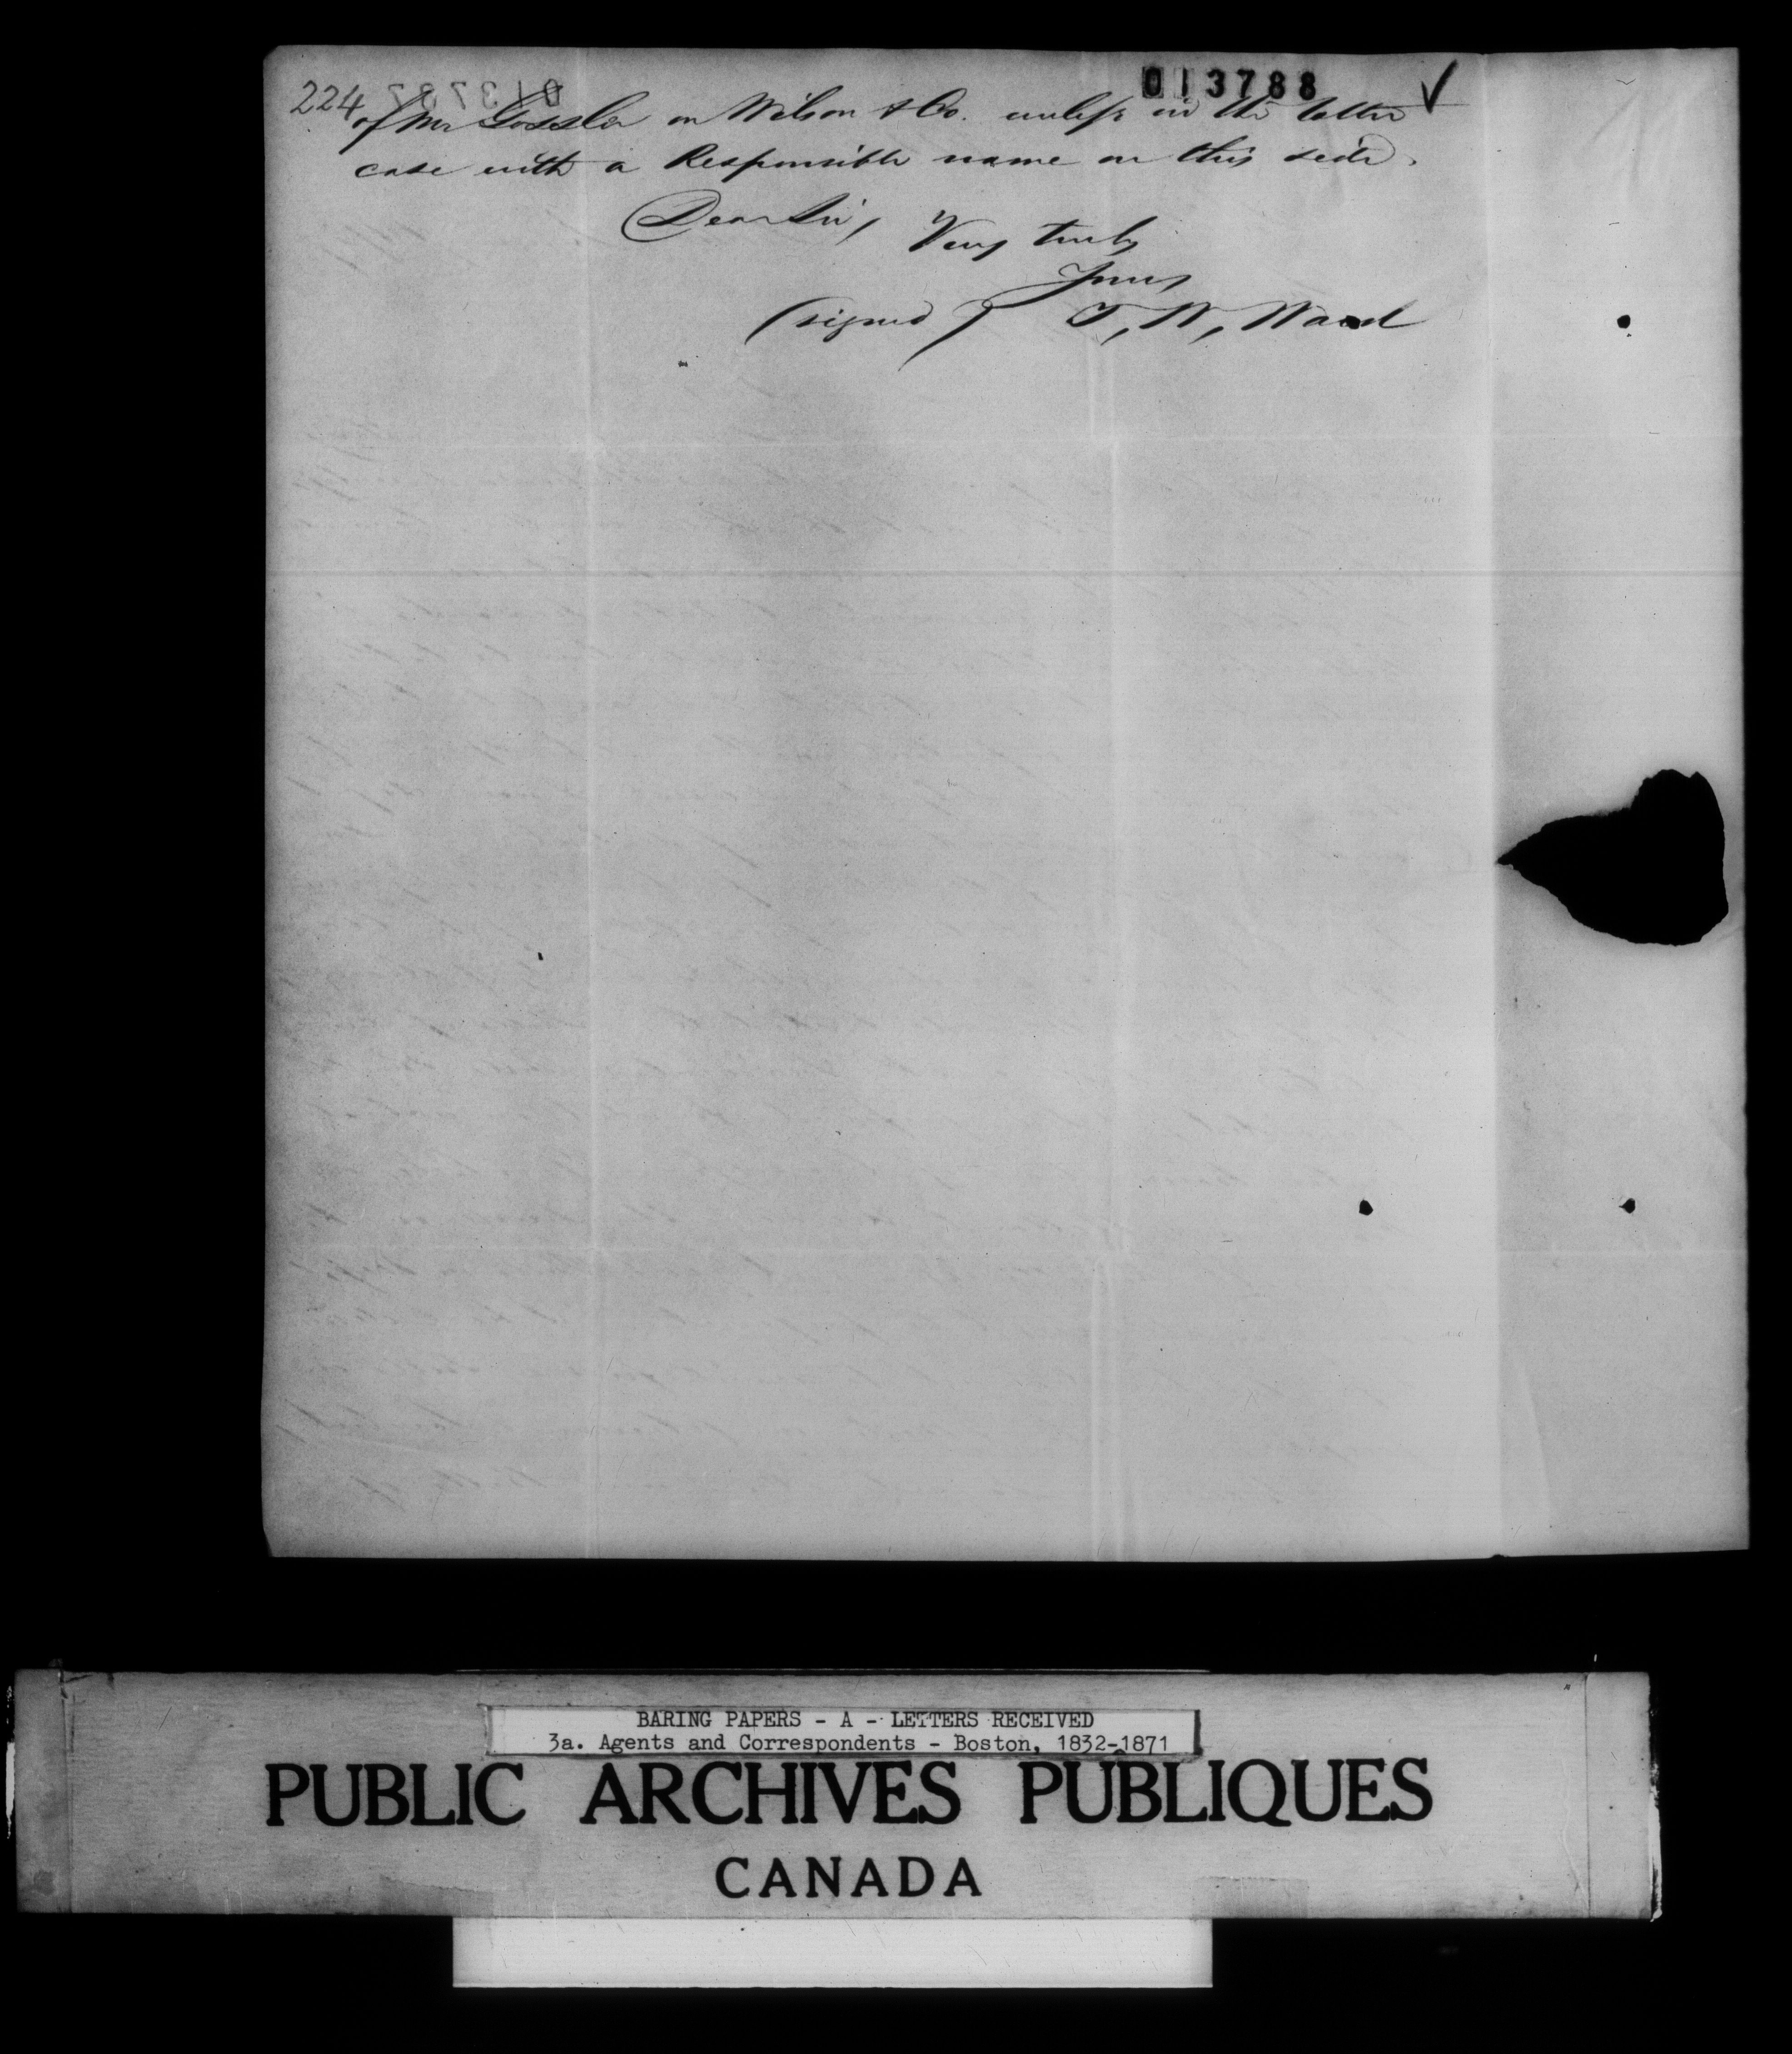 224
013788 ✓
of Mr Gossler on Wilson & Co. unless in the latter
case with a Responsible name on this side.
Dear Sir,
Very truly
Yours
(signed) T. W. Ward
BARING PAPERS - A - LETTERS RECEIVED
3a. Agents and Correspondents - Boston, 1832-1871
PUBLIC ARCHIVES PUBLIQUES
CANADA